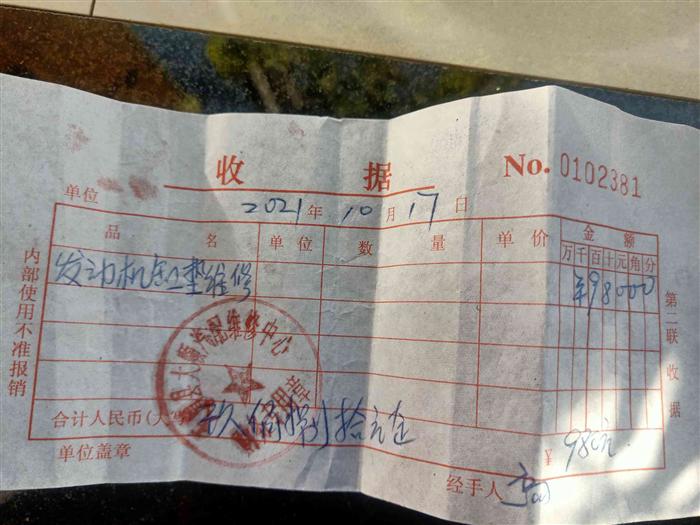 收 据
No. 0102381
单位
2021年10月17日
品 名 单 位 数 量 单 价 金 额
万千百十元角分
发动机缸垫维修 ¥98000
合计人民币(大
玖佰捌拾元正
¥ 980元
单位盖章
经手人
内部使用不准报销
第二联收据
汽车维修中心